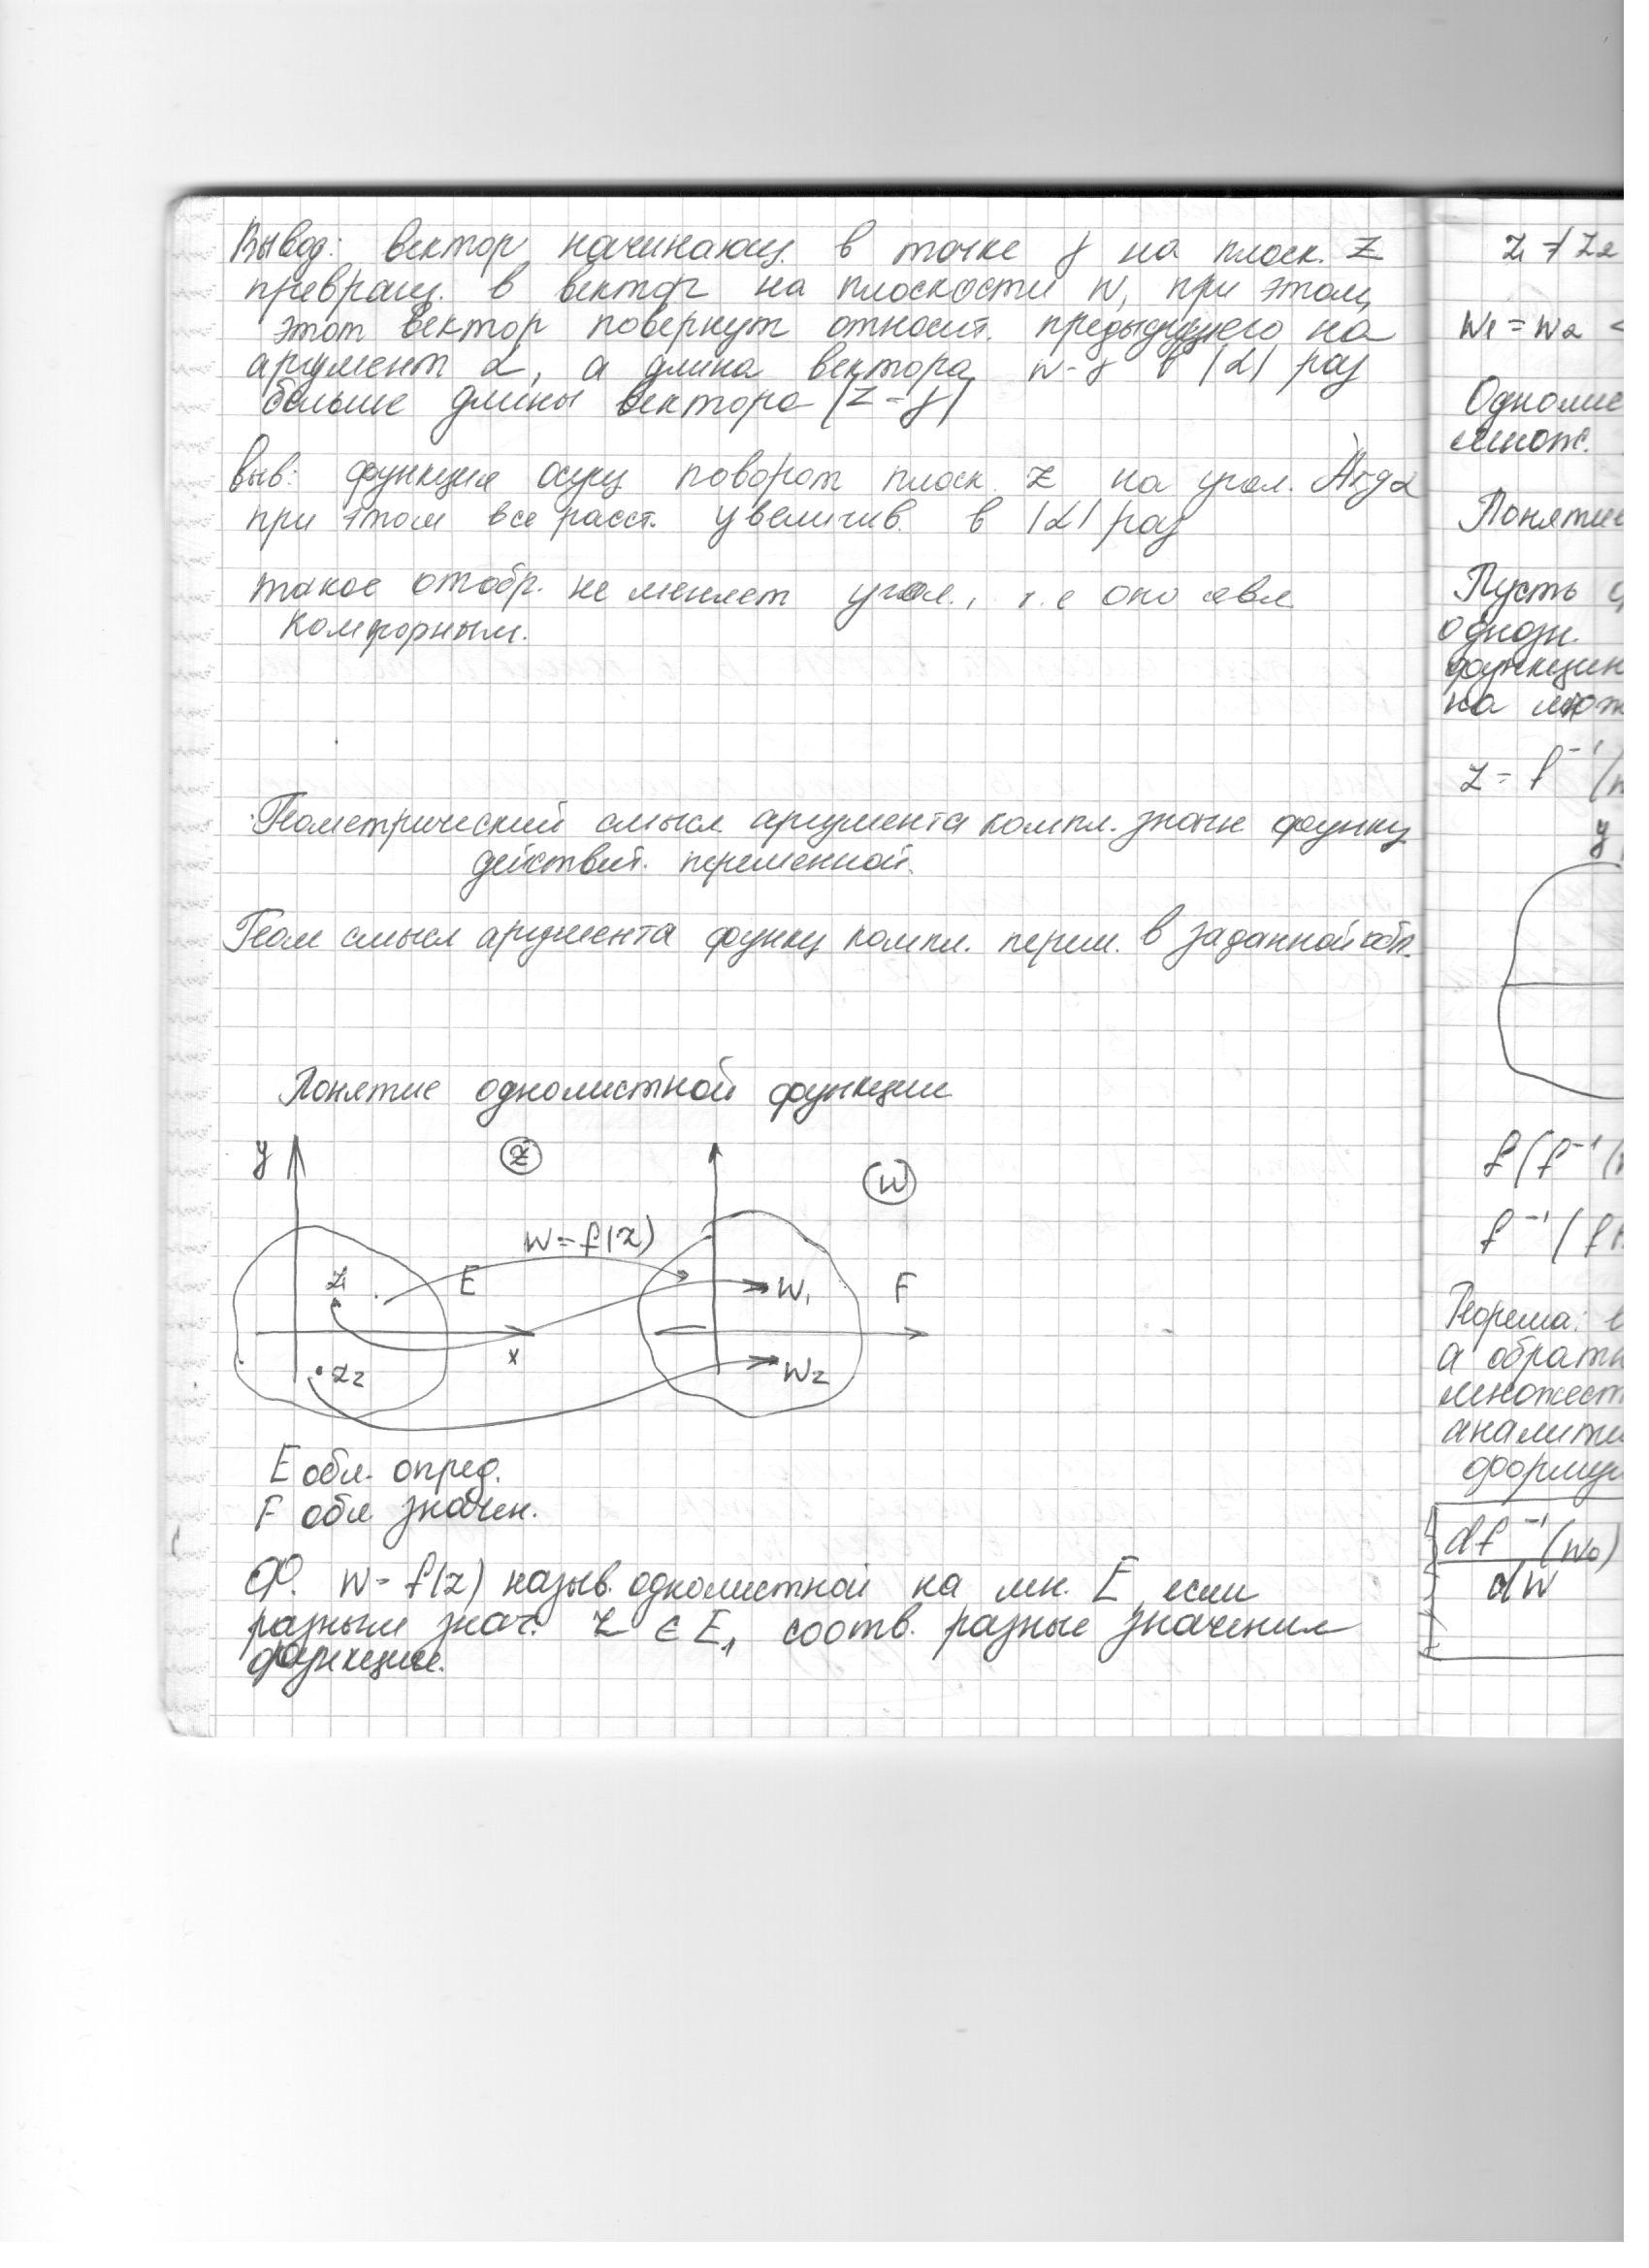 Вывод: вектор начинающ. в точке γ на плоск. Z
превращ. в вектор на плоскости W, при этом,
этот вектор повернут относит. предыдущего на
аргумент α, а длина вектора w-γ в |α| раз
больше длины вектора |z-γ|
Выв: функция осущ поворот плоск. Z на угол. Argα
при этом все расст. увеличив. в |α| раз
такое отобр. не меняет угол., т.е оно явл
комформным.
Геометрический смысл аргумента компл. значн функц
действит. переменной.
Геом смысл аргумента функц компл. перем. в заданной обл.
Понятие однолистной функции
y
Z
W
W=f(z)
z₁
E
W₁
F
x
z₂
W₂
E обл. опред.
F обл значен.
Ф. W=f(z) назыв. однолистной на мн. E, если
разным знач. Z ∈ E, соотв. разные значения
функции.
z₁ ≠ z₂
W₁ = W₂ <
Однолис
множ.
Понятие
Пусть
однозн.
функцин
на множ
z = f⁻¹(
y
f(f⁻¹(
f⁻¹(f(
Теорема:
а обратн
множест
аналити
формул
df⁻¹(w₀)
dw